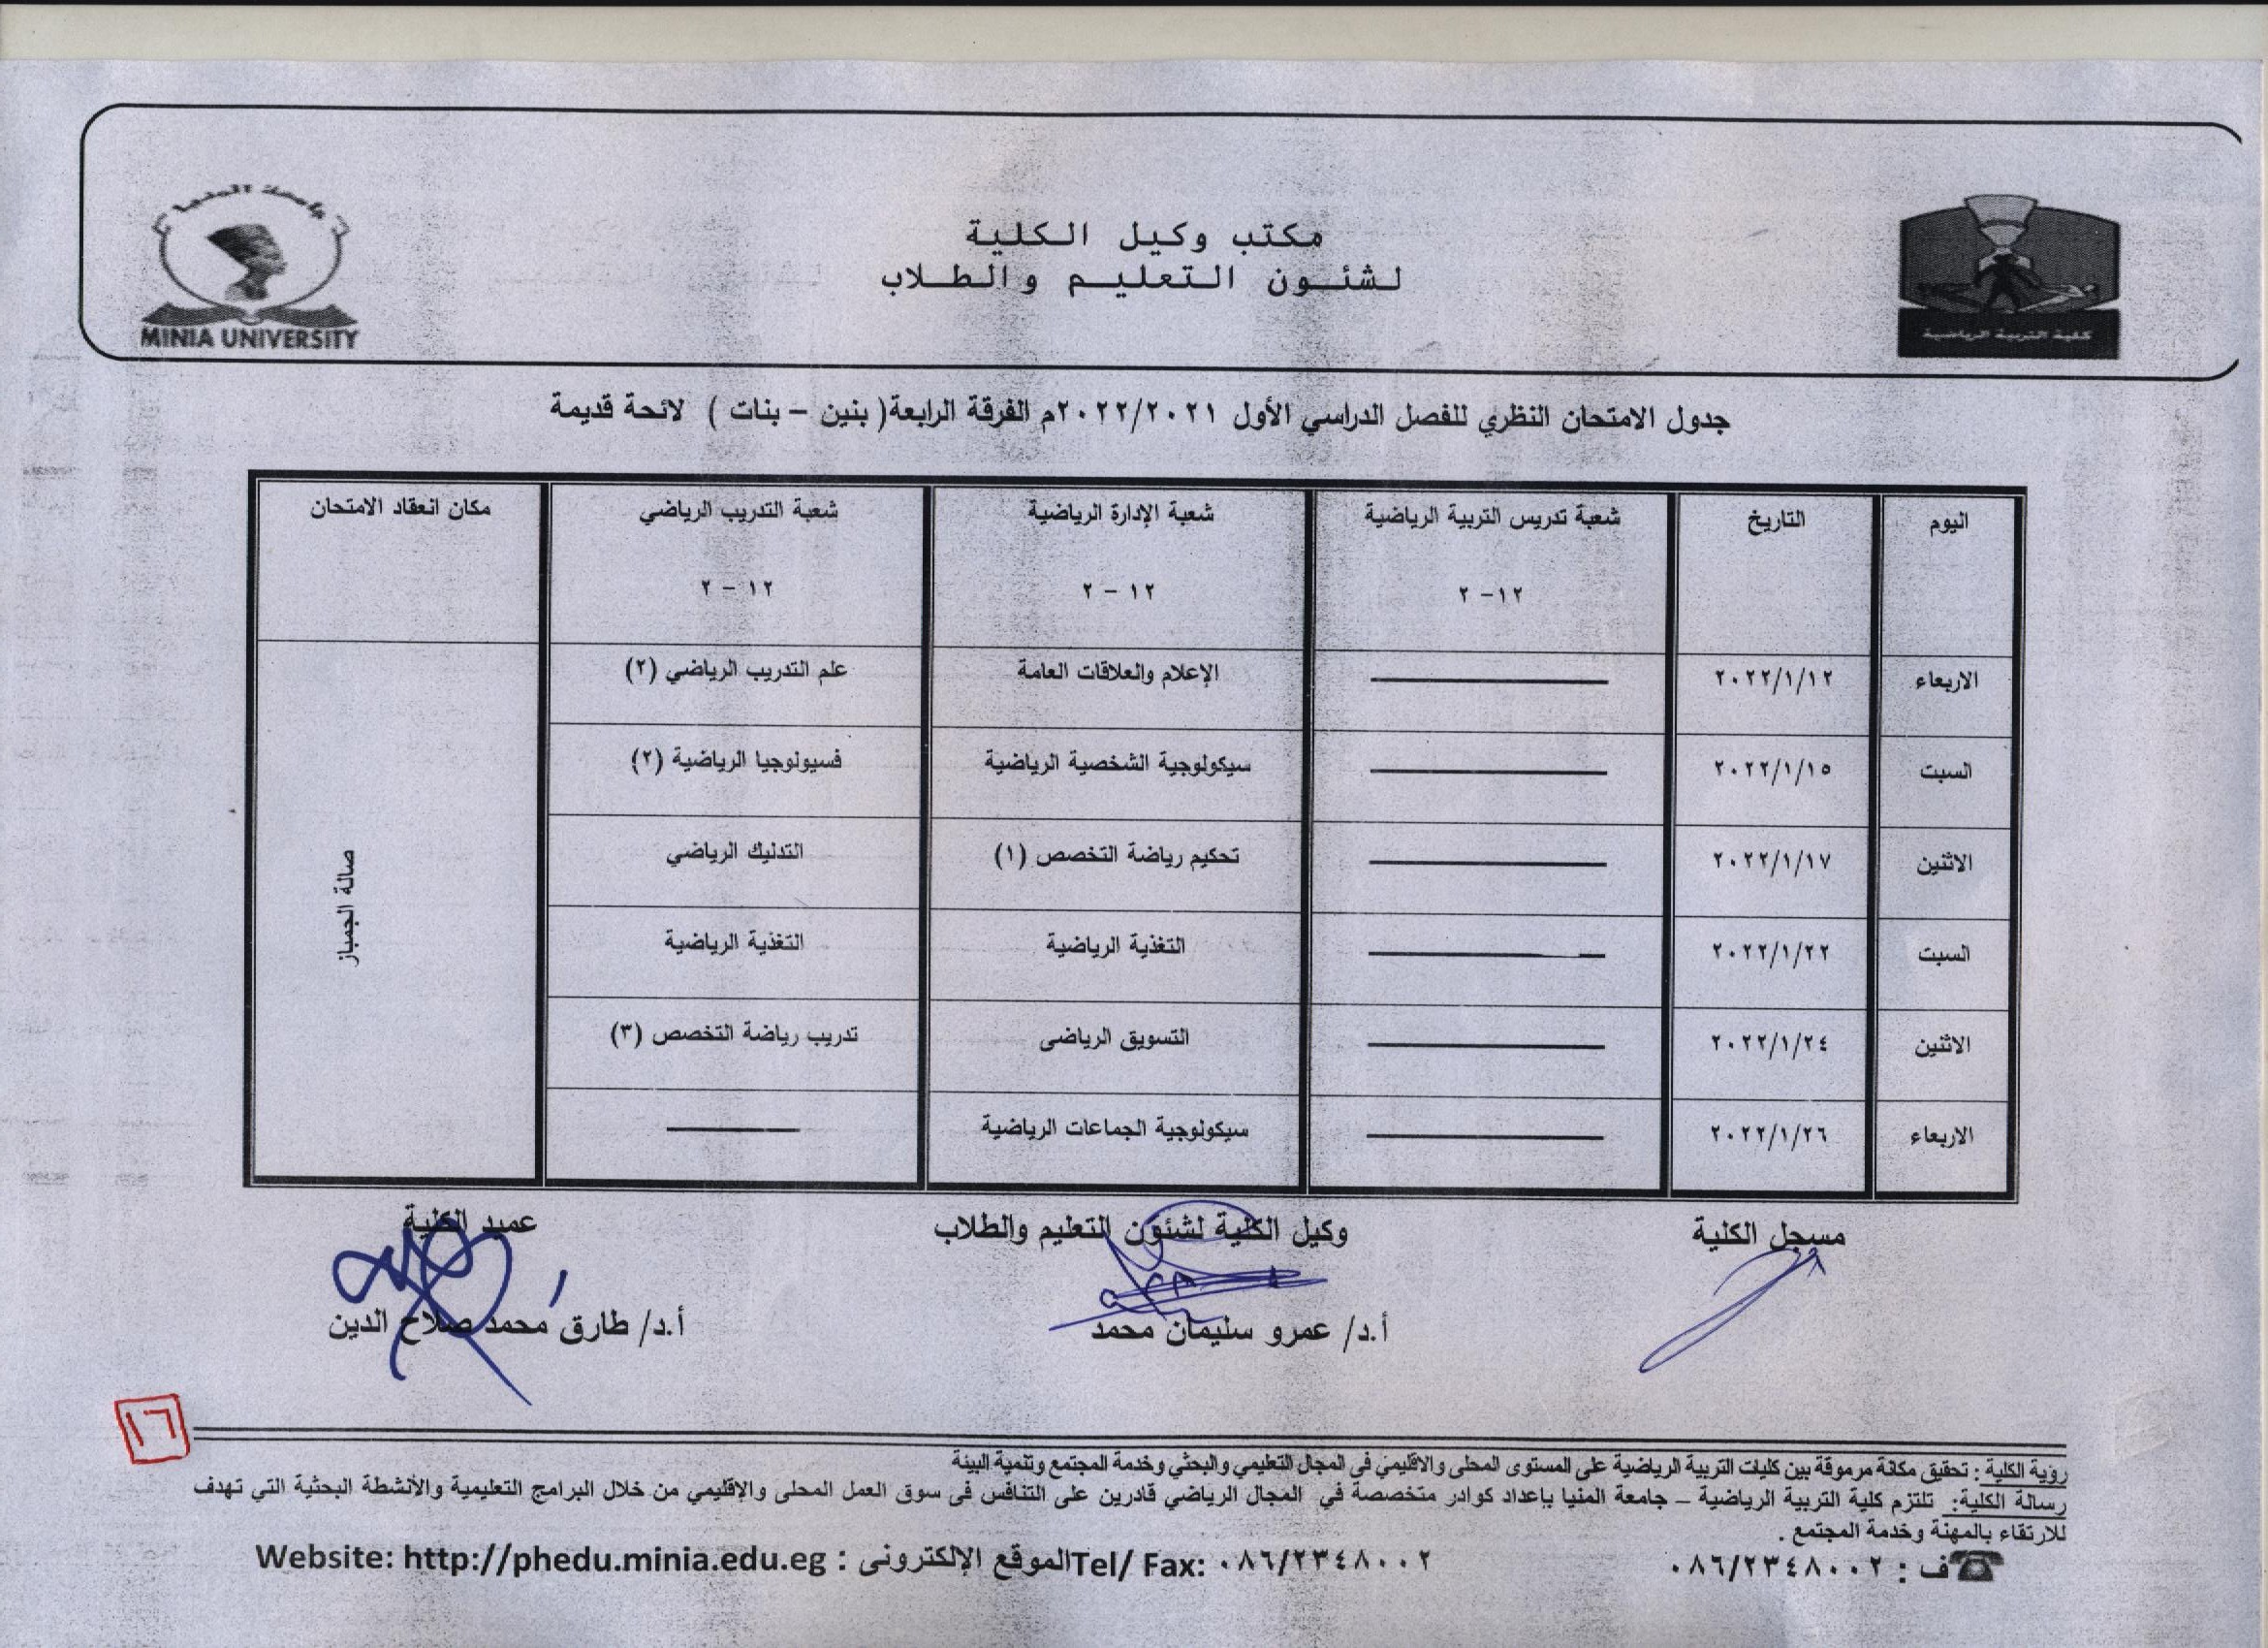 جامعة المنيا
MINIA UNIVERSITY
مكتب وكيل الكلية
لشئون التعليم والطلاب
كلية التربية الرياضية
جدول الامتحان النظري للفصل الدراسي الأول ٢٠٢٢/٢٠٢١م الفرقة الرابعة( بنين – بنات ) لائحة قديمة
اليوم التاريخ شعبة تدريس التربية الرياضية شعبة الإدارة الرياضية شعبة التدريب الرياضي مكان انعقاد الامتحان
١٢- ٢ ١٢ – ٢ ١٢ – ٢
الاربعاء ٢٠٢٢/١/١٢ الإعلام والعلاقات العامة علم التدريب الرياضي (٢)
السبت ٢٠٢٢/١/١٥ سيكولوجية الشخصية الرياضية فسيولوجيا الرياضية (٢)
الاثنين ٢٠٢٢/١/١٧ تحكيم رياضة التخصص (١) التدليك الرياضي
السبت ٢٠٢٢/١/٢٢ التغذية الرياضية التغذية الرياضية
الاثنين ٢٠٢٢/١/٢٤ التسويق الرياضى تدريب رياضة التخصص (٣)
الاربعاء ٢٠٢٢/١/٢٦ سيكولوجية الجماعات الرياضية
صالة الجمباز
مسجل الكلية وكيل الكلية لشئون التعليم والطلاب عميد الكلية
أ.د/ عمرو سليمان محمد أ.د/ طارق محمد صلاح الدين
١٦
رؤية الكلية : تحقيق مكانة مرموقة بين كليات التربية الرياضية على المستوى المحلى والاقليمي فى المجال التعليمي والبحثي وخدمة المجتمع وتنمية البيئة
رسالة الكلية: تلتزم كلية التربية الرياضية – جامعة المنيا بإعداد كوادر متخصصة في المجال الرياضي قادرين على التنافس فى سوق العمل المحلى والإقليمي من خلال البرامج التعليمية والأنشطة البحثية التي تهدف
للارتقاء بالمهنة وخدمة المجتمع .
ف : ٠٨٦/٢٣٤٨٠٠٢ Tel/ Fax: ٠٨٦/٢٣٤٨٠٠٢ الموقع الإلكترونى : Website: http://phedu.minia.edu.eg